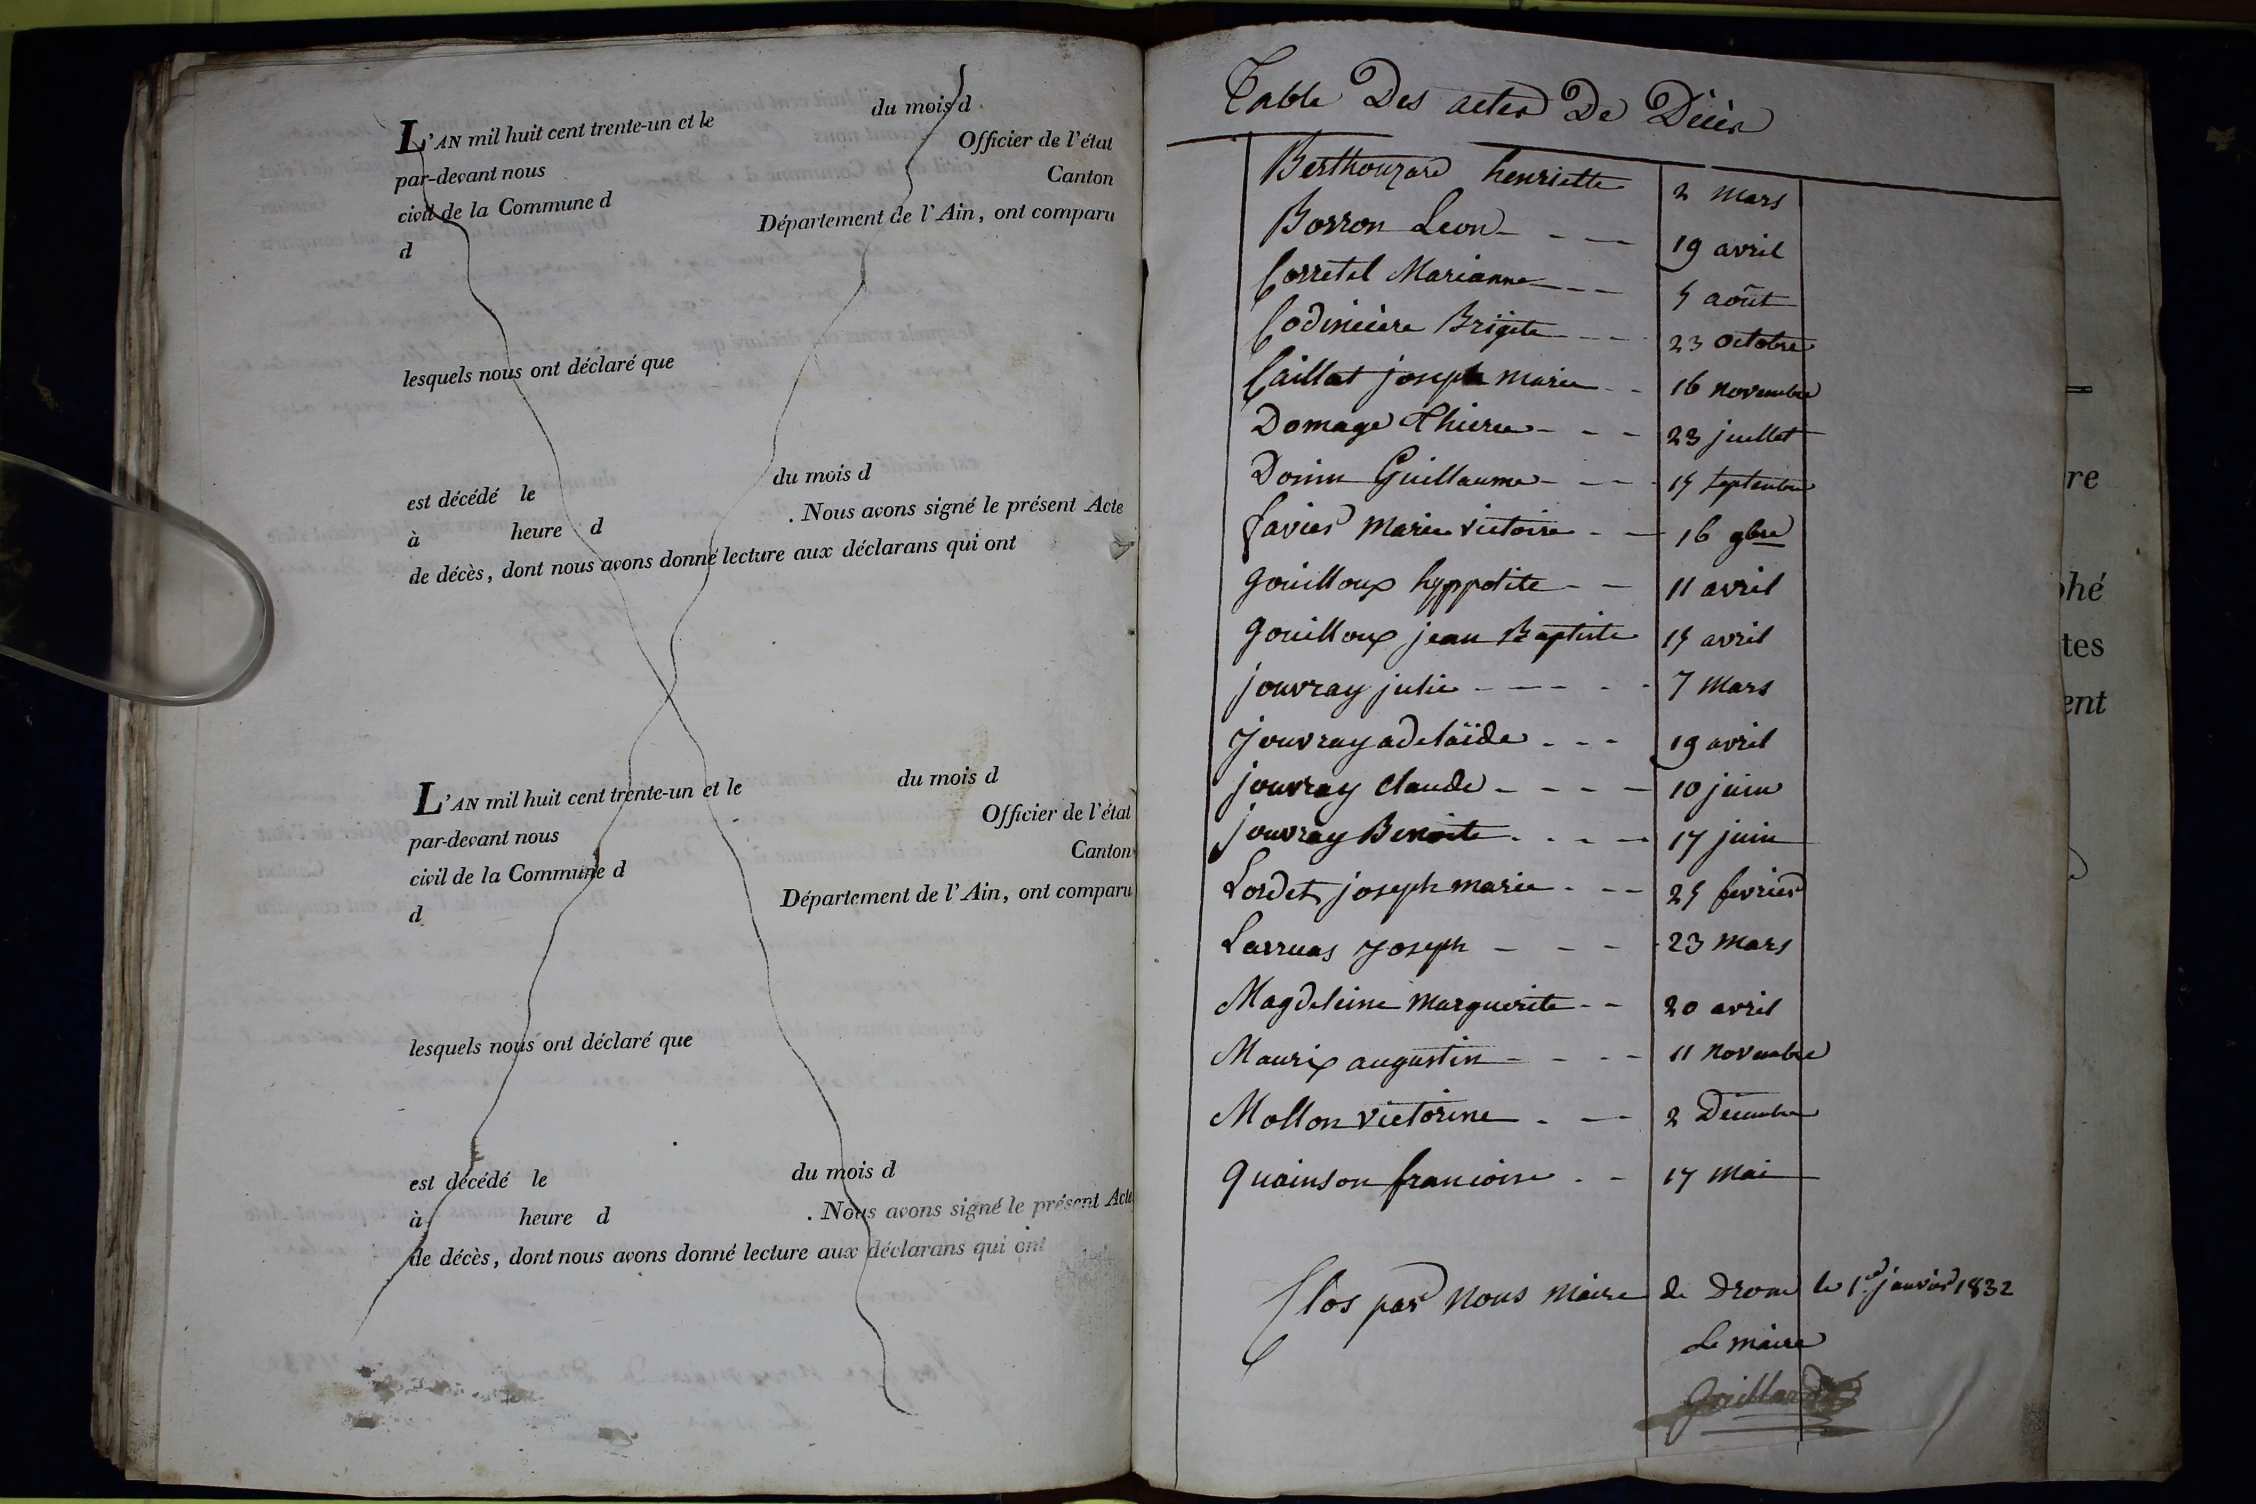 L'AN mil huit cent trente-un et le du mois d
par-devant nous Officier de l'état
civil de la Commune d Canton
d Département de l'Ain, ont comparu
lesquels nous ont déclaré que
est décédé le du mois d
à heure d . Nous avons signé le présent Acte
de décès, dont nous avons donné lecture aux déclarans qui ont
L'AN mil huit cent trente-un et le du mois d
par-devant nous Officier de l'état
civil de la Commune d Canton
d Département de l'Ain, ont comparu
lesquels nous ont déclaré que
est décédé le du mois d
à heure d . Nous avons signé le présent Acte
de décès, dont nous avons donné lecture aux déclarans qui ont
Table Des actes De Décès
Berthouzard henriette 2 mars
Borron Leon 19 avril
Corretel Marianne 5 août
Codinière Brigite 23 octobre
Caillat joseph marie 16 novembre
Domage 23 juillet
Guillaume 15 septembre
favier marie victoire 16 9bre
gouilloux hyppolite 11 avril
gouilloux jean Baptiste 15 avril
jouvray julie 7 mars
jouvray adelaïde 19 avril
jouvray claude 10 juin
jouvray Benoite 17 juin
Lordet joseph marie 25 fevrier
Larruas joseph 23 mars
Magdeleine marguerite 20 avril
Maurix augustin 11 novembre
Mollon victorine 2 Décembre
quainson francoise 17 mai
Clos par nous maire de drom le 1er janvier 1832
Le maire
re
phé
tes
ent